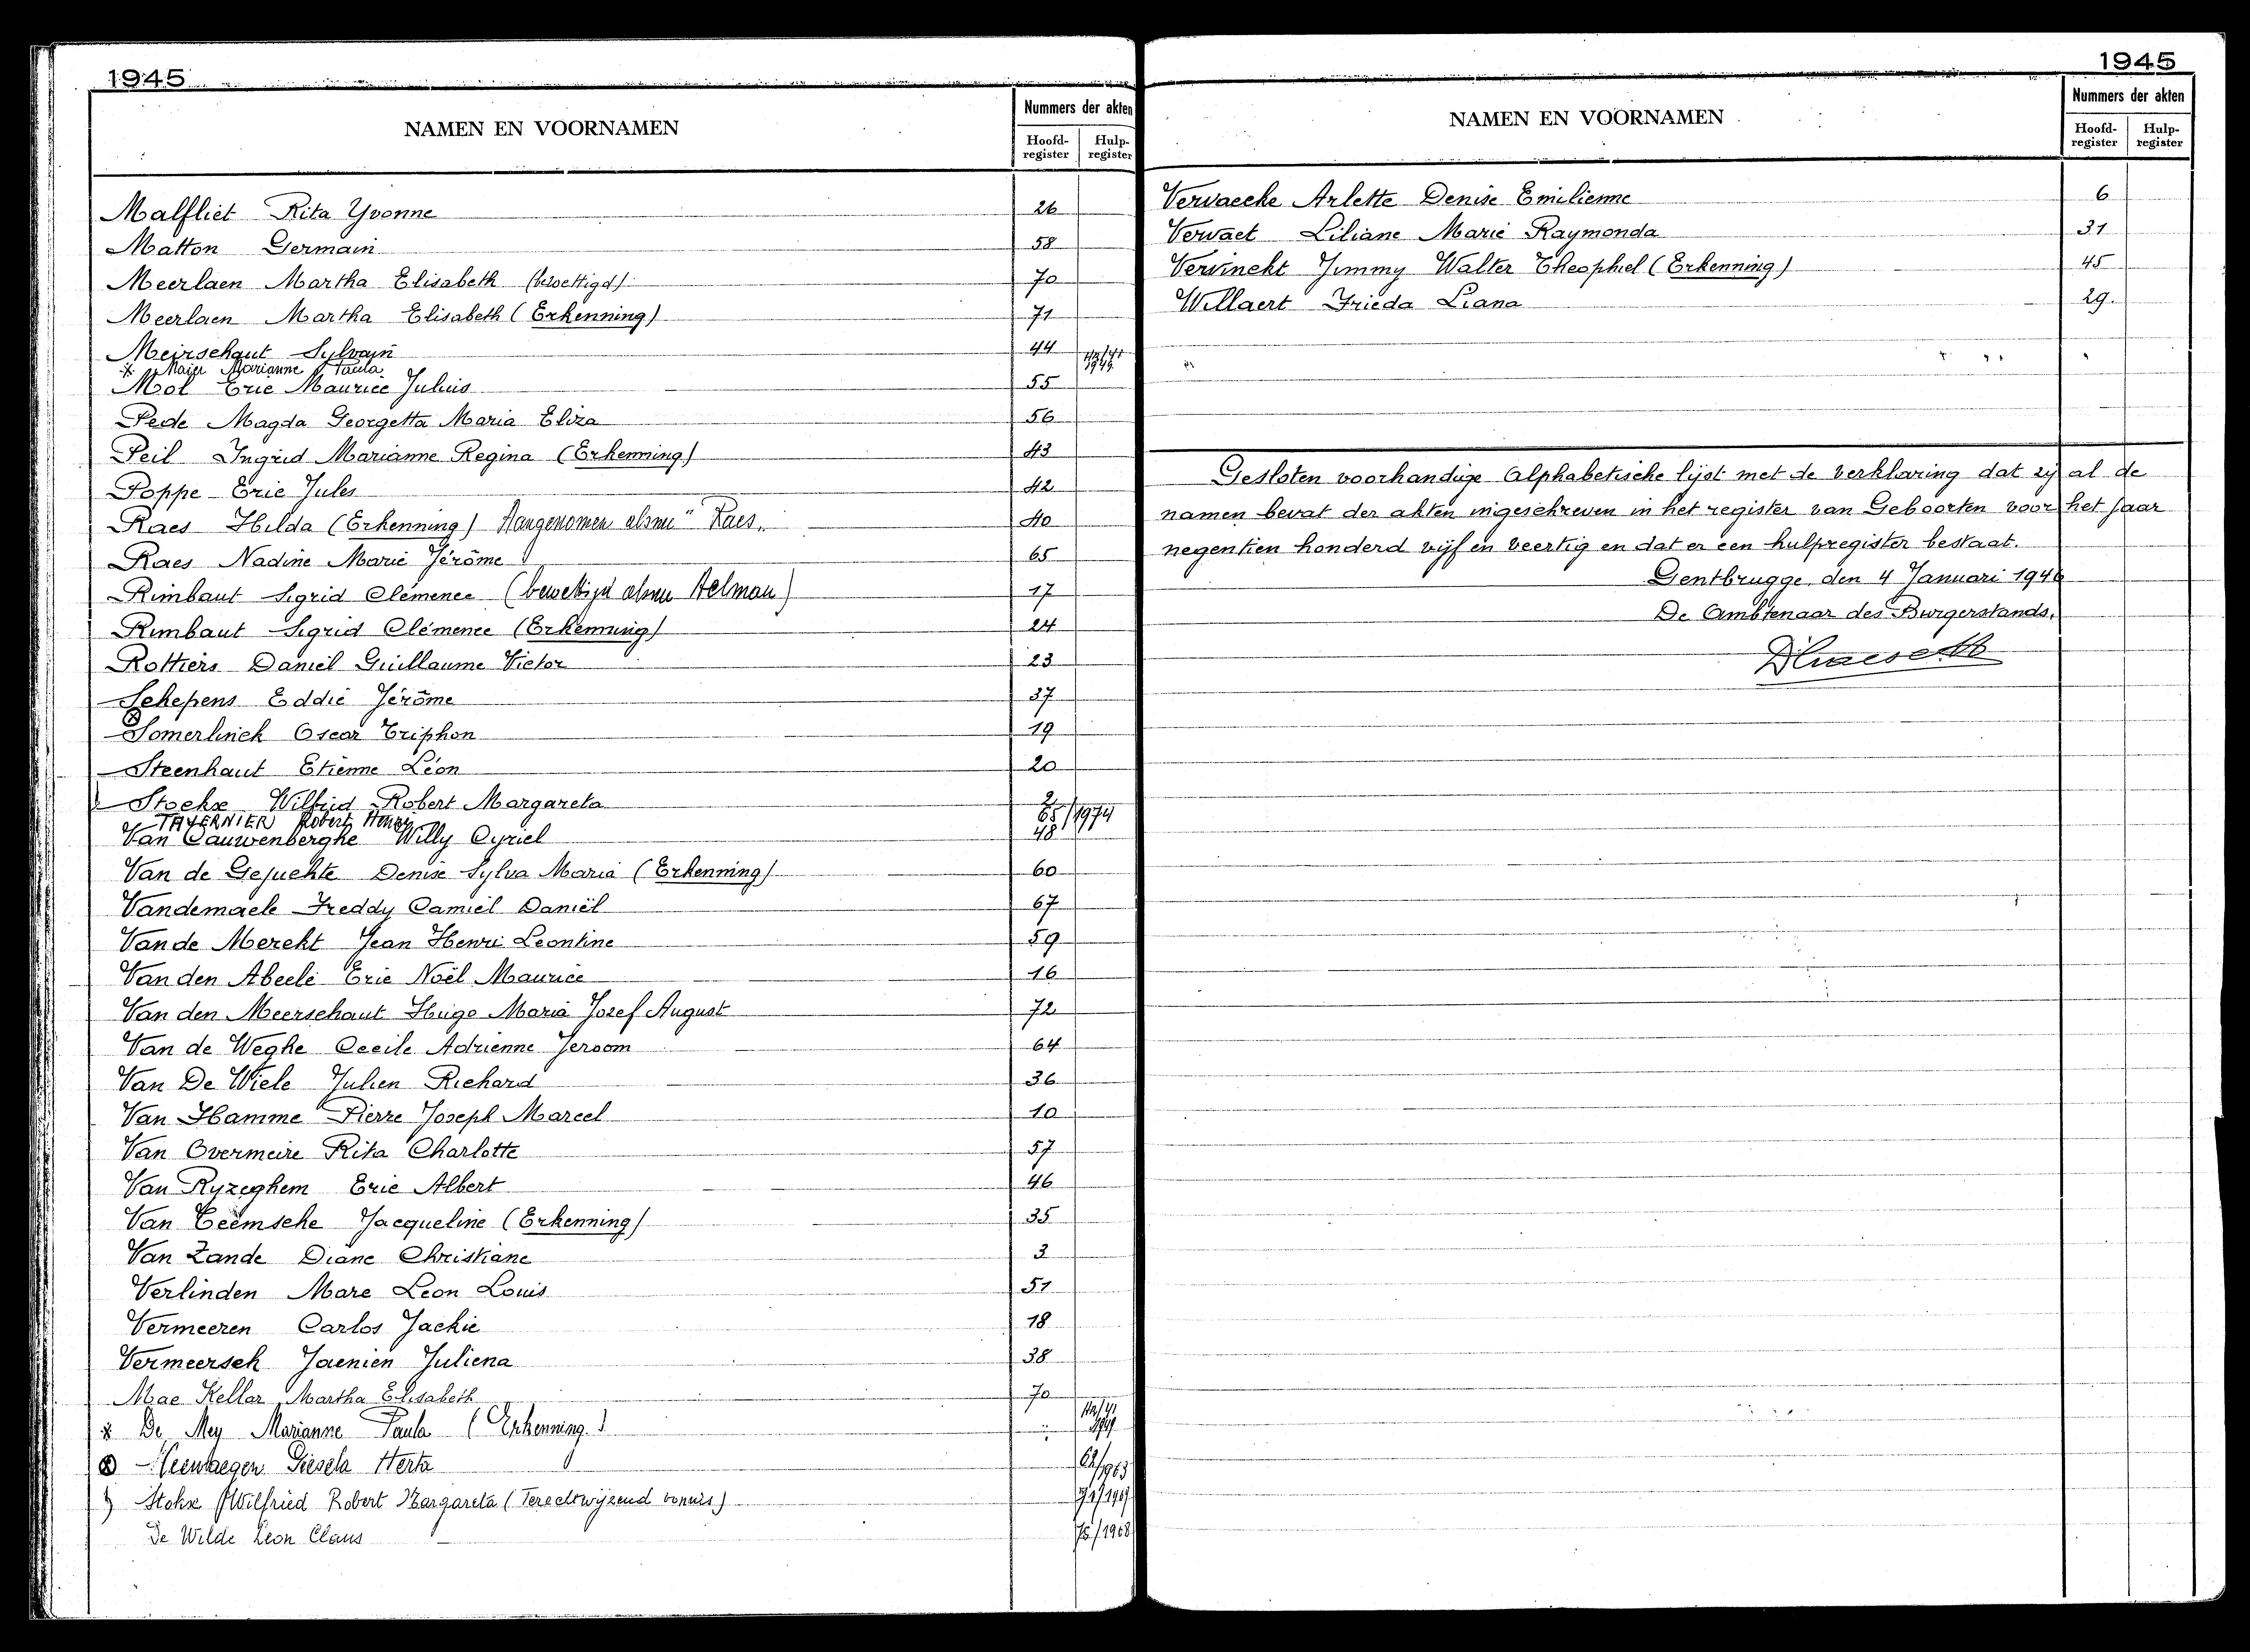 1945
NAMEN EN VOORNAMEN
Nummers der akten
Hoofd-register Hulp-register
Malfliet Rita Yvonne 26
Matton Germain 58
Meerlaen Martha Elisabeth (bewettigd) 70
Meerlaen Martha Elisabeth (Erkenning) 71
Meirschaut Sylvain 44
* Maier Marianne Paula
Mol Eric Maurice Julius 55
Pede Magda Georgetta Maria Eliza 56
Peil Ingrid Marianne Regina (Erkenning) 43
Poppe Eric Jules 42
Raes Hilda (Erkenning) Aangenomen alsnu "Raes" 40
Raes Nadine Marie Jérôme 65
Rimbaut Sigrid Clémence (bewettigd alsnu Aelman) 17
Rimbaut Sigrid Clémence (Erkenning) 24
Rottiers Daniël Guillaume Victor 23
Schepens Eddie Jérôme 37
Somerlinck Oscar Triphon 19
Steenhaut Etienne Léon 20
Stockx Wilfried Robert Margareta 2
TAVERNIER Robert Henri 65/1974
Van Cauwenberghe Willy Cyriel 48
Van de Gejuchte Denise Sylva Maria (Erkenning) 60
Vandemaele Freddy Camiel Daniël 67
Van de Merckt Jean Henri Leontine 59
Van den Abeele Eric Noël Maurice 16
Van den Meerschaut Hugo Maria Jozef August 72
Van de Weghe Cecile Adrienne Jeroom 64
Van De Wiele Julien Richard 36
Van Hamme Pierre Joseph Marcel 10
Van Overmeire Rita Charlotte 57
Van Ryzeghem Eric Albert 46
Van Teemsche Jacqueline (Erkenning) 35
Van Zande Diane Christiane 3
Verlinden Marc Leon Louis 51
Vermeeren Carlos Jackie 18
Vermeersch Jaenien Juliena 38
Mac Kellar Martha Elisabeth 70
* De Mey Marianne Paula (Erkenning)
Giesela Herta 62/1963
Stokx Wilfried Robert Margareta (Terechtwijzend vonnis)
De Wilde Leon Claus 75/1968
1945
NAMEN EN VOORNAMEN
Nummers der akten
Hoofd-register Hulp-register
Vervaecke Arlette Denise Emilienne 6
Vervaet Liliane Marie Raymonda 31
Vervinckt Jimmy Walter Theophiel (Erkenning) 45
Willaert Frieda Liana 29.
Gesloten voorhandige Alphabetische lijst met de verklaring dat zij al de
namen bevat der akten ingeschreven in het register van Geboorten voor het jaar
negentien honderd vijf en veertig en dat er een hulpregister bestaat.
Gentbrugge, den 4 Januari 1946
De Ambtenaar des Burgerstands,